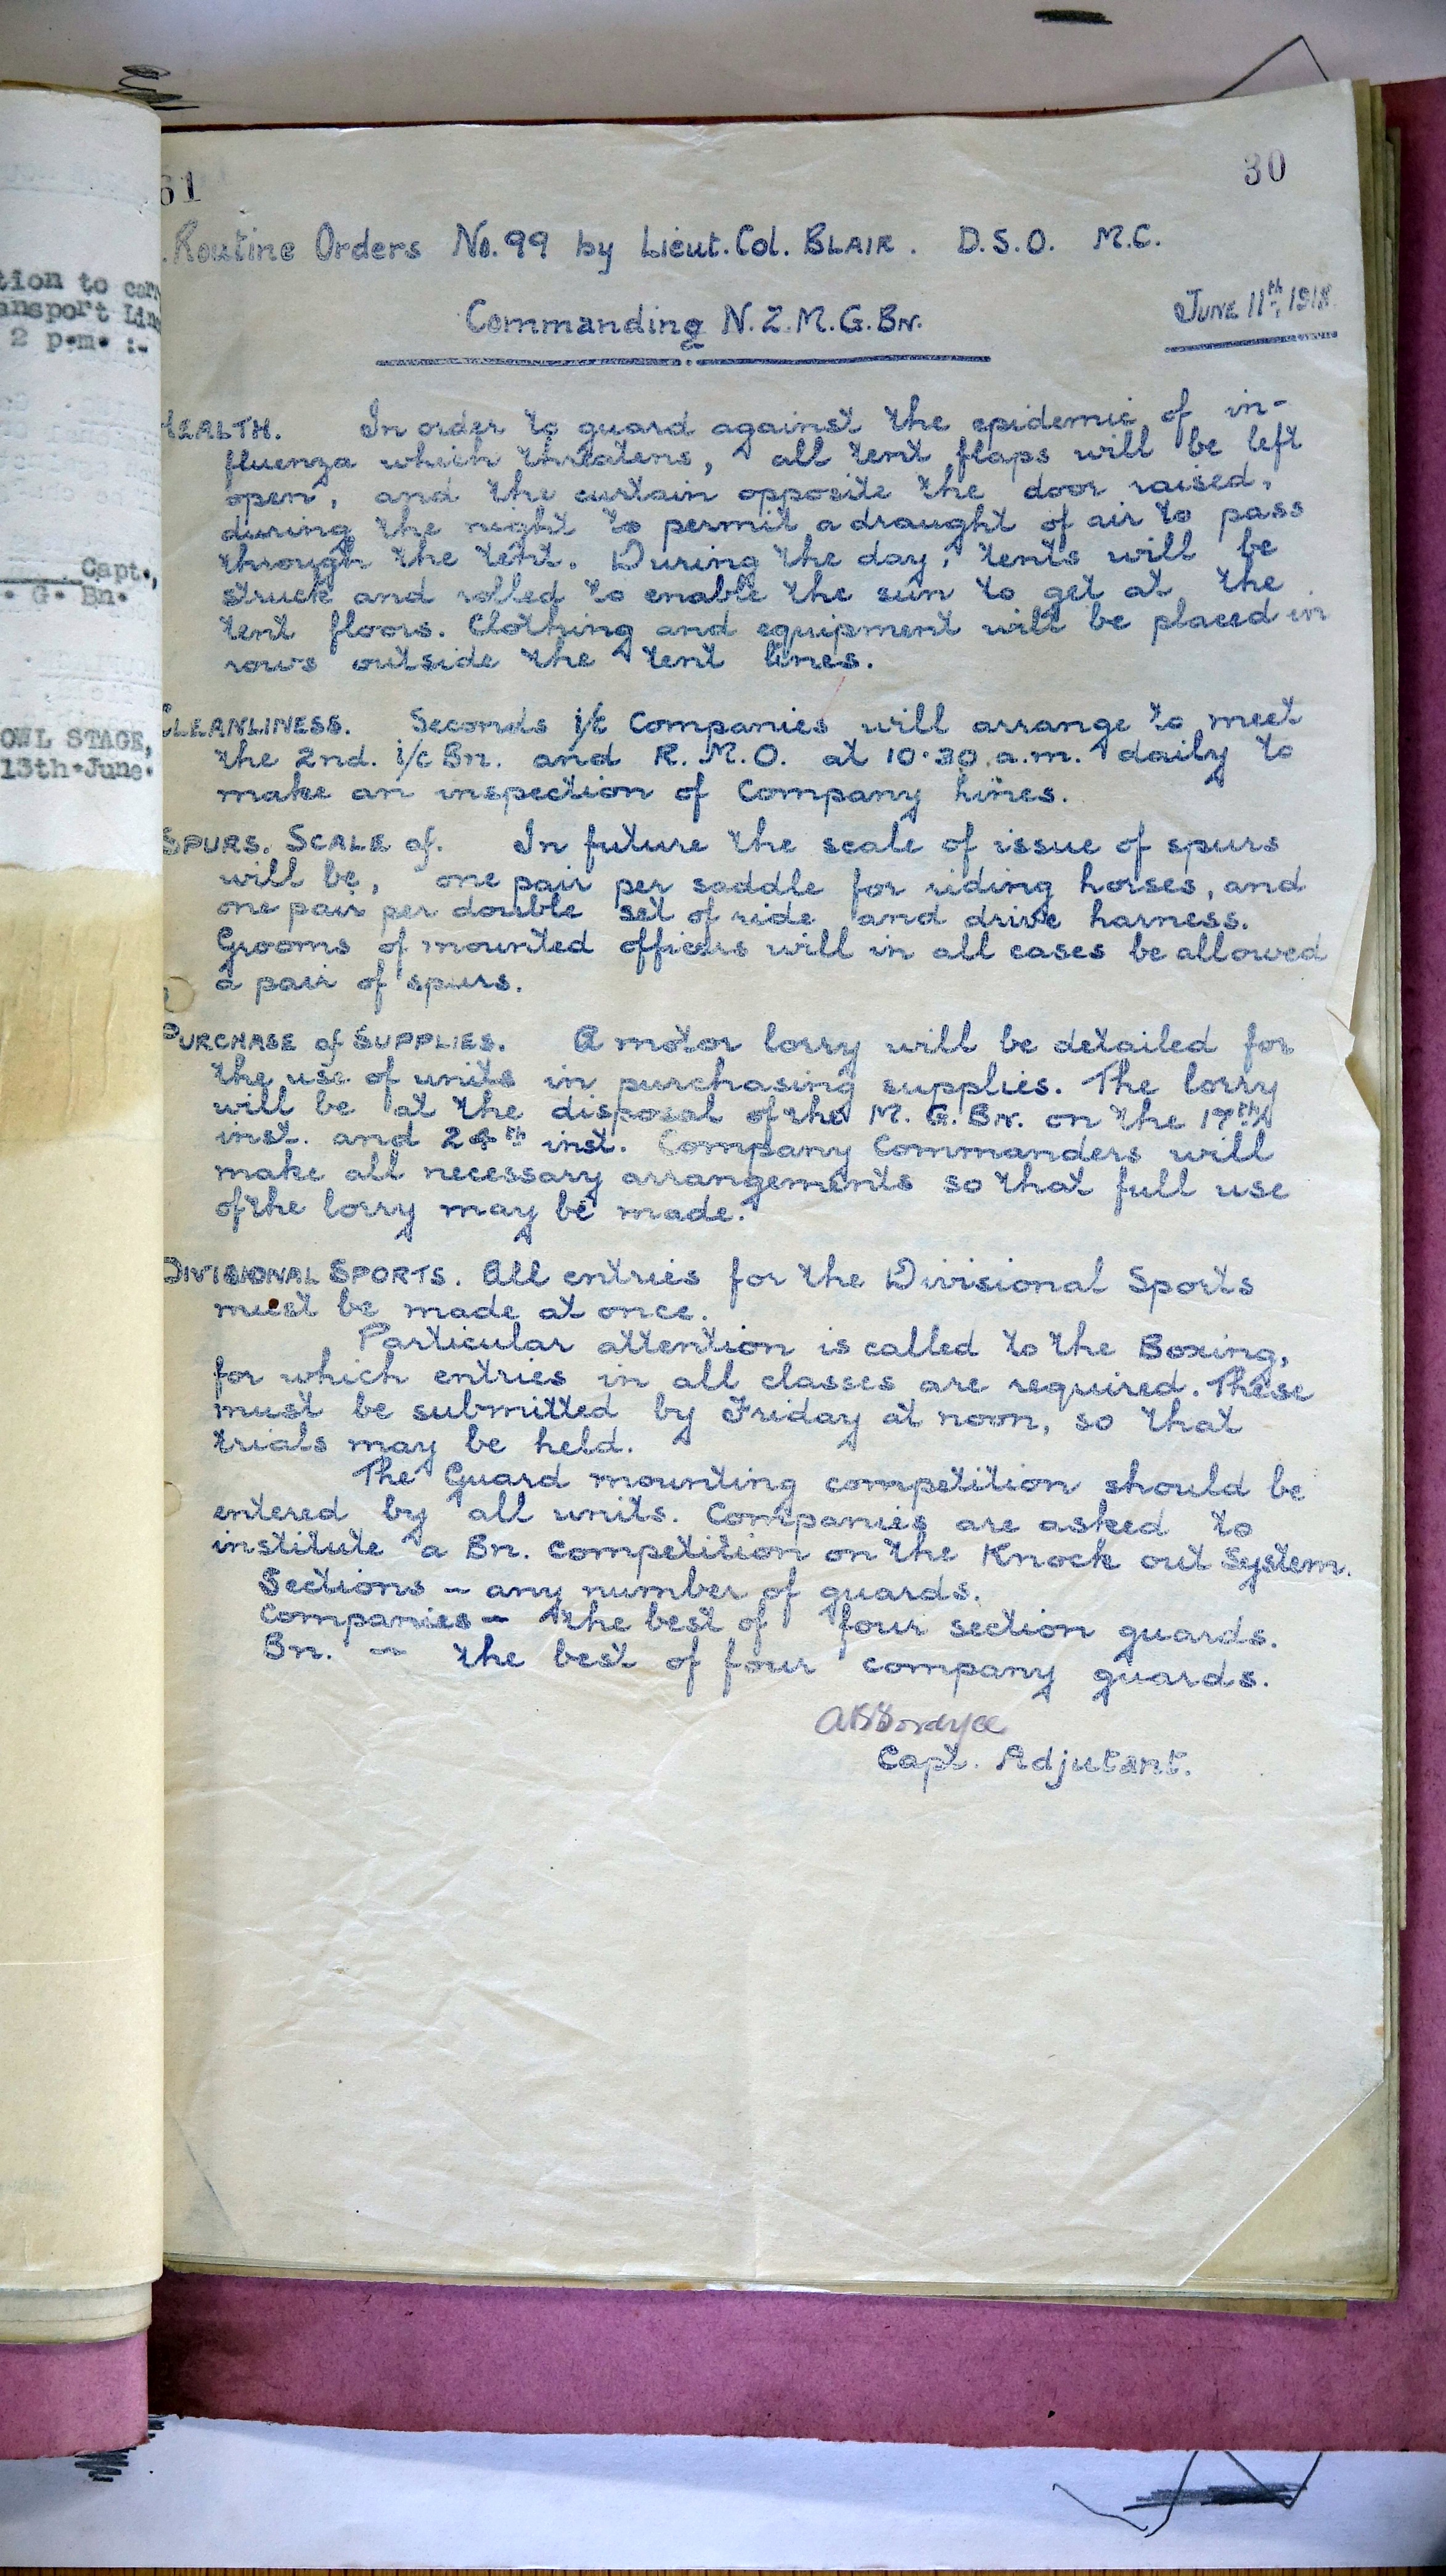 tion to carr
ansport Line
2 p.m. :-
Capt.,
. G. Bn.
OWL STAGE,
13th.June.
61
30
.Routine Orders No.99 by Lieut.Col. BLAIR. D.S.O. M.C.
Commanding N.Z.M.G.BN.
JUNE 11th, 1918
HEALTH. In order to guard against the epidemic of in-
fluenza which threatens, all tent flaps will be left
open, and the curtain opposite the door raised,
during the night to permit a draught of air to pass
through the tent. During the day, tents will be
struck and rolled to enable the sun to get at the
tent floors. Clothing and equipment will be placed in
rows outside the tent lines.
CLEANLINESS. Seconds i/c Companies will arrange to meet
the 2nd. i/c Bn. and R.M.O. at 10.30.a.m. daily to
make an inspection of Company Lines.
SPURS. SCALE of. In future the scale of issue of spurs
will be, one pair per saddle for riding horses, and
one pair per double set of ride and drive harness.
Grooms of mounted officers will in all cases be allowed
a pair of spurs.
PURCHASE of SUPPLIES. A motor lorry will be detailed for
the use of units in purchasing supplies. The lorry
will be at the disposal of the M.G.BN. on the 17th
inst. and 24th inst. Company Commanders will
make all necessary arrangements so that full use
of the lorry may be made.
DIVISIONAL SPORTS. All entries for the Divisional Sports
must be made at once.
Particular attention is called to the Boxing,
for which entries in all classes are required. These
must be submitted by Friday at noon, so that
trials may be held.
The Guard mounting competition should be
entered by all units. Companies are asked to
institute a Bn. competition on the Knock out System.
Sections - any number of guards.
Companies - the best of four section guards.
Bn. - the best of four company guards.
Capt. Adjutant.